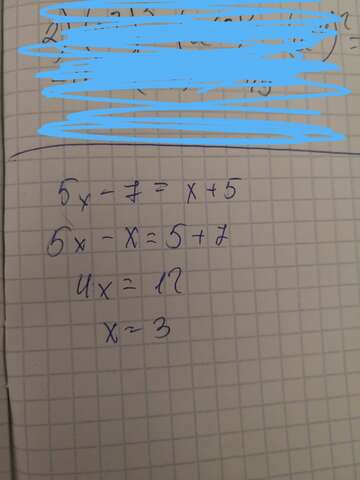 5x - 7 = x + 5
5x - x = 5 + 7
4x = 12
x = 3